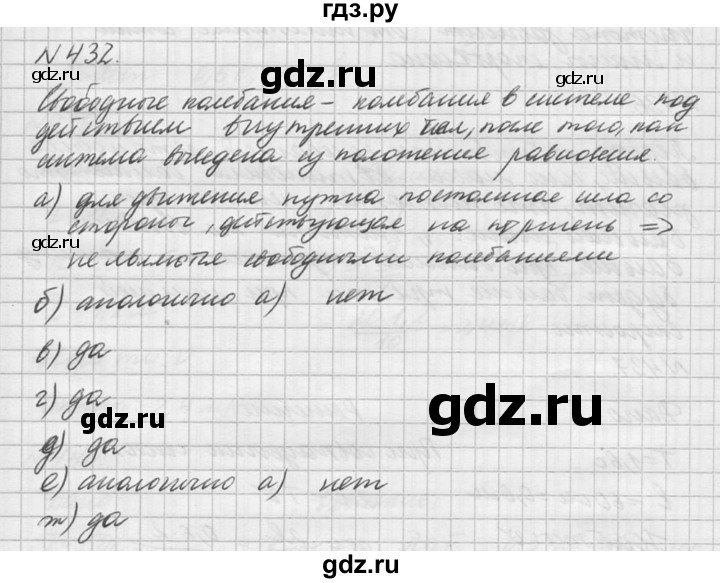 гдз.ру
N 432.
Свободные колебания – колебания в системе под
действием внутренних тел, после того, как
система выведена из положения равновесия.
а) для движения нужна постоянная сила со
стороны, действующая на поршень =>
не являются свободными колебаниями
б) аналогично а) нет
в) да
г) да
д) да
е) аналогично а) нет
ж) да
gdz.ru
gdz.ru
gdz.ru
gdz.ru
gdz.ru
gdz.ru
gdz.ru
gdz.ru
gdz.ru
gdz.ru
gdz.ru